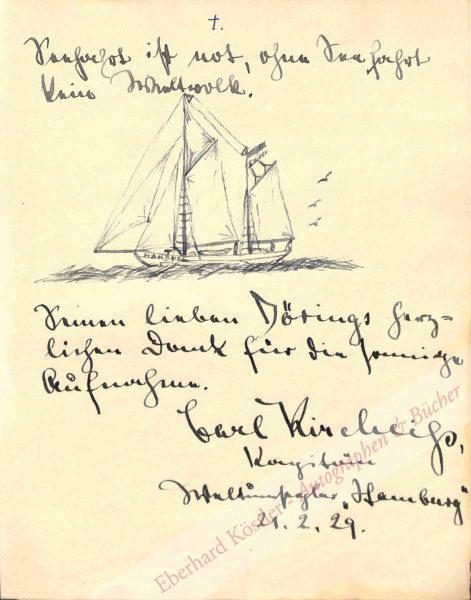 †.
Seefahrt ist not, ohne Seefahrt
kein Weltvolk.
HAMBURG
Seinen lieben Dörings herz=
lichen Dank für die sonnige
Aufnahme.
Carl Kircheiß,
Kapitän
Weltumsegler „Hamburg“
21.2.29.
Eberhard Köstler - Autographen & Bücher